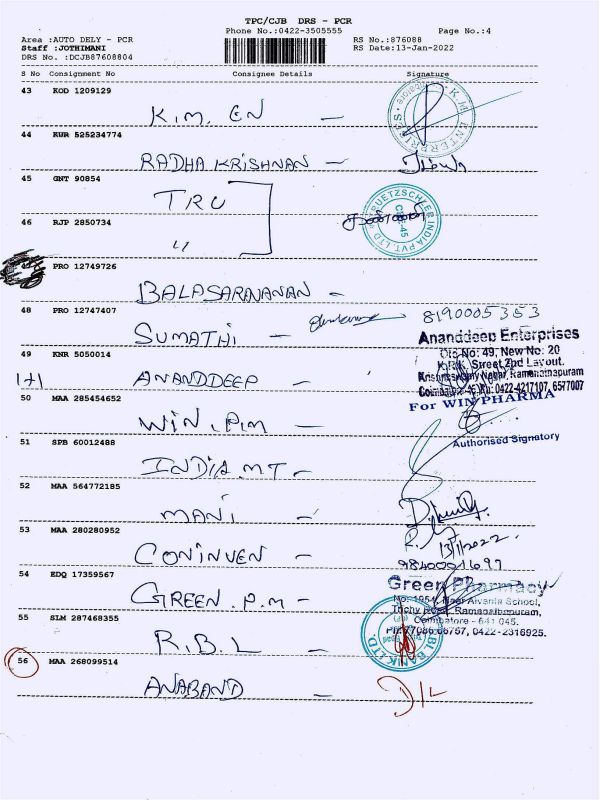 TPC/CJB DRS - PCR
Phone No.:0422-3505555
Page No.:4
Area :AUTO DELY - PCR
RS No.:876088
Staff :JOTHIMANI
RS Date:13-Jan-2022
DRS No. :DCJB87608804
S No Consignment No Consignee Details Signature
43 KOD 1209129
K.M. EN -
K.M. ENTERPRISES
44 KUR 525234774
RADHA KRISHNAN -
45 GNT 90854
TRU
TRUETZSCHLER INDIA PVT. LTD.
CBE-45
46 RJP 2850734
"
PRO 12749726
BALASARAVANAN -
48 PRO 12747407
8190005353
SUMATHI -
Ananddeep Enterprises
Old No: 49, New No: 20
K.R.K. Street, 2nd Layout.
49 KNR 5050014
Ramanathapuram
171 ANANDDEEP -
Coimbatore-45 Ph: 0422-4217107, 6577007
50 MAA 285454652
For WIN PHARMA
WIN . P.M -
Authorised Signatory
51 SPB 60012488
INDIA. M.T -
52 MAA 564772185
MANI -
53 MAA 280280952
13/1/2022
CONINVEN -
9840001697
54 EDQ 17359567
Green Pharmacy
GREEN . P.M -
Trichy Road, Ramanathapuram,
Coimbatore - 641 045.
55 SLM 287468355
PH:77086 66757, 0422-2316925.
R.B.L -
RBL BANK LTD.
56 MAA 268099514
ANABAND -
D/L